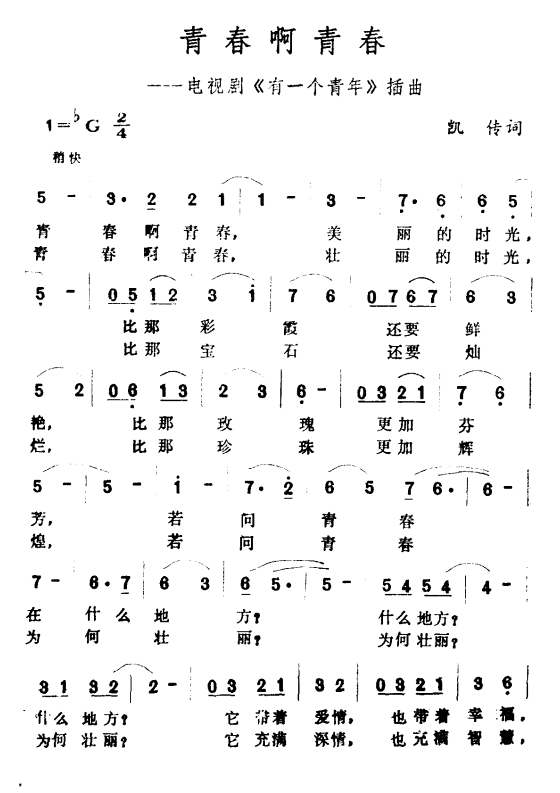 青春啊青春
——电视剧《有一个青年》插曲
1=♭G 2/4 凯传词
稍快
5 - | 3· 2 2 1 | 1 - | 3 - | 7· 6 6 5
青 春啊青春, 美 丽的时光,
青 春啊青春, 壮 丽的时光,
5 - | 0 5 1 2 3 1 | 7 6 | 0 7 6 7 6 3
比那彩霞 还要鲜
比那宝石 还要灿
5 2 | 0 6 1 3 2 3 | 6 - | 0 3 2 1 7 6
艳, 比那玫瑰 更加芬
烂, 比那珍珠 更加辉
5 - | 5 - | 1 - | 7· 2 | 6 5 7 6· | 6 -
芳, 若问青春
煌, 若问青春
7 - | 6· 7 | 6 3 | 6 5· | 5 - | 5 4 5 4 | 4 -
在什么地方? 什么地方?
为何壮丽? 为何壮丽?
3 1 3 2 | 2 - | 0 3 2 1 | 3 2 | 0 3 2 1 3 6
什么地方? 它带着爱情, 也带着幸福,
为何壮丽? 它充满深情, 也充满智慧,